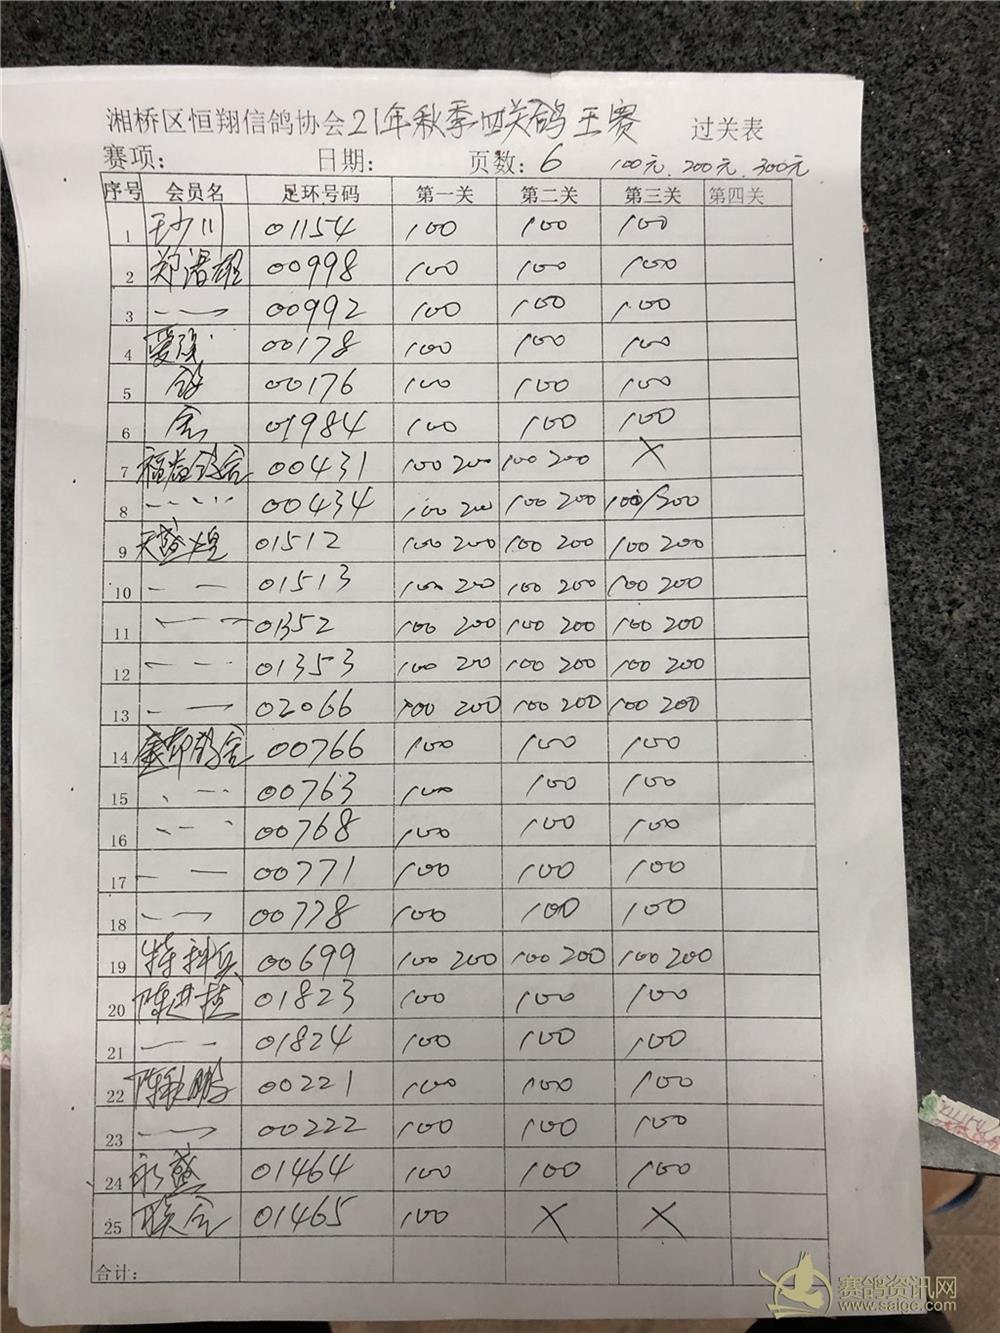 湘桥区恒翔信鸽协会21年秋季四关鸽王赛 过关表
赛项: 日期: 页数: 6 100元.200元.300元
序号 会员名 足环号码 第一关 第二关 第三关 第四关
1 王少川 01154 100 100 100
2 郑 雄 00998 100 100 100
3 — — 00992 100 100 100
4 00178 100 100 100
5 鸽 00176 100 100 100
6 舍 01984 100 100 100
7 福 鸽舍 00431 100 200 100 200 X
8 00434 100 200 100 200 100/200
9 天盛煌 01512 100 200 100 200 100 200
10 — — 01513 100 200 100 200 100 200
11 — — 01352 100 200 100 200 100 200
12 — — 01353 100 200 100 200 100 200
13 — — 02066 100 200 100 200 100 200
14 鸽舍 00766 100 100 100
15 — — 00763 100 100 100
16 — — 00768 100 100 100
17 — — 00771 100 100 100
18 — — 00778 100 100 100
19 特科兵 00699 100 200 100 200 100 200
20 陈进 01823 100 100 100
21 — — 01824 100 100 100
22 陈 鹏 00221 100 100 100
23 — — 00222 100 100 100
24 永盛 01464 100 100 100
25 联合 01465 100 X X
合计:
赛鸽资讯网
www.saigc.com